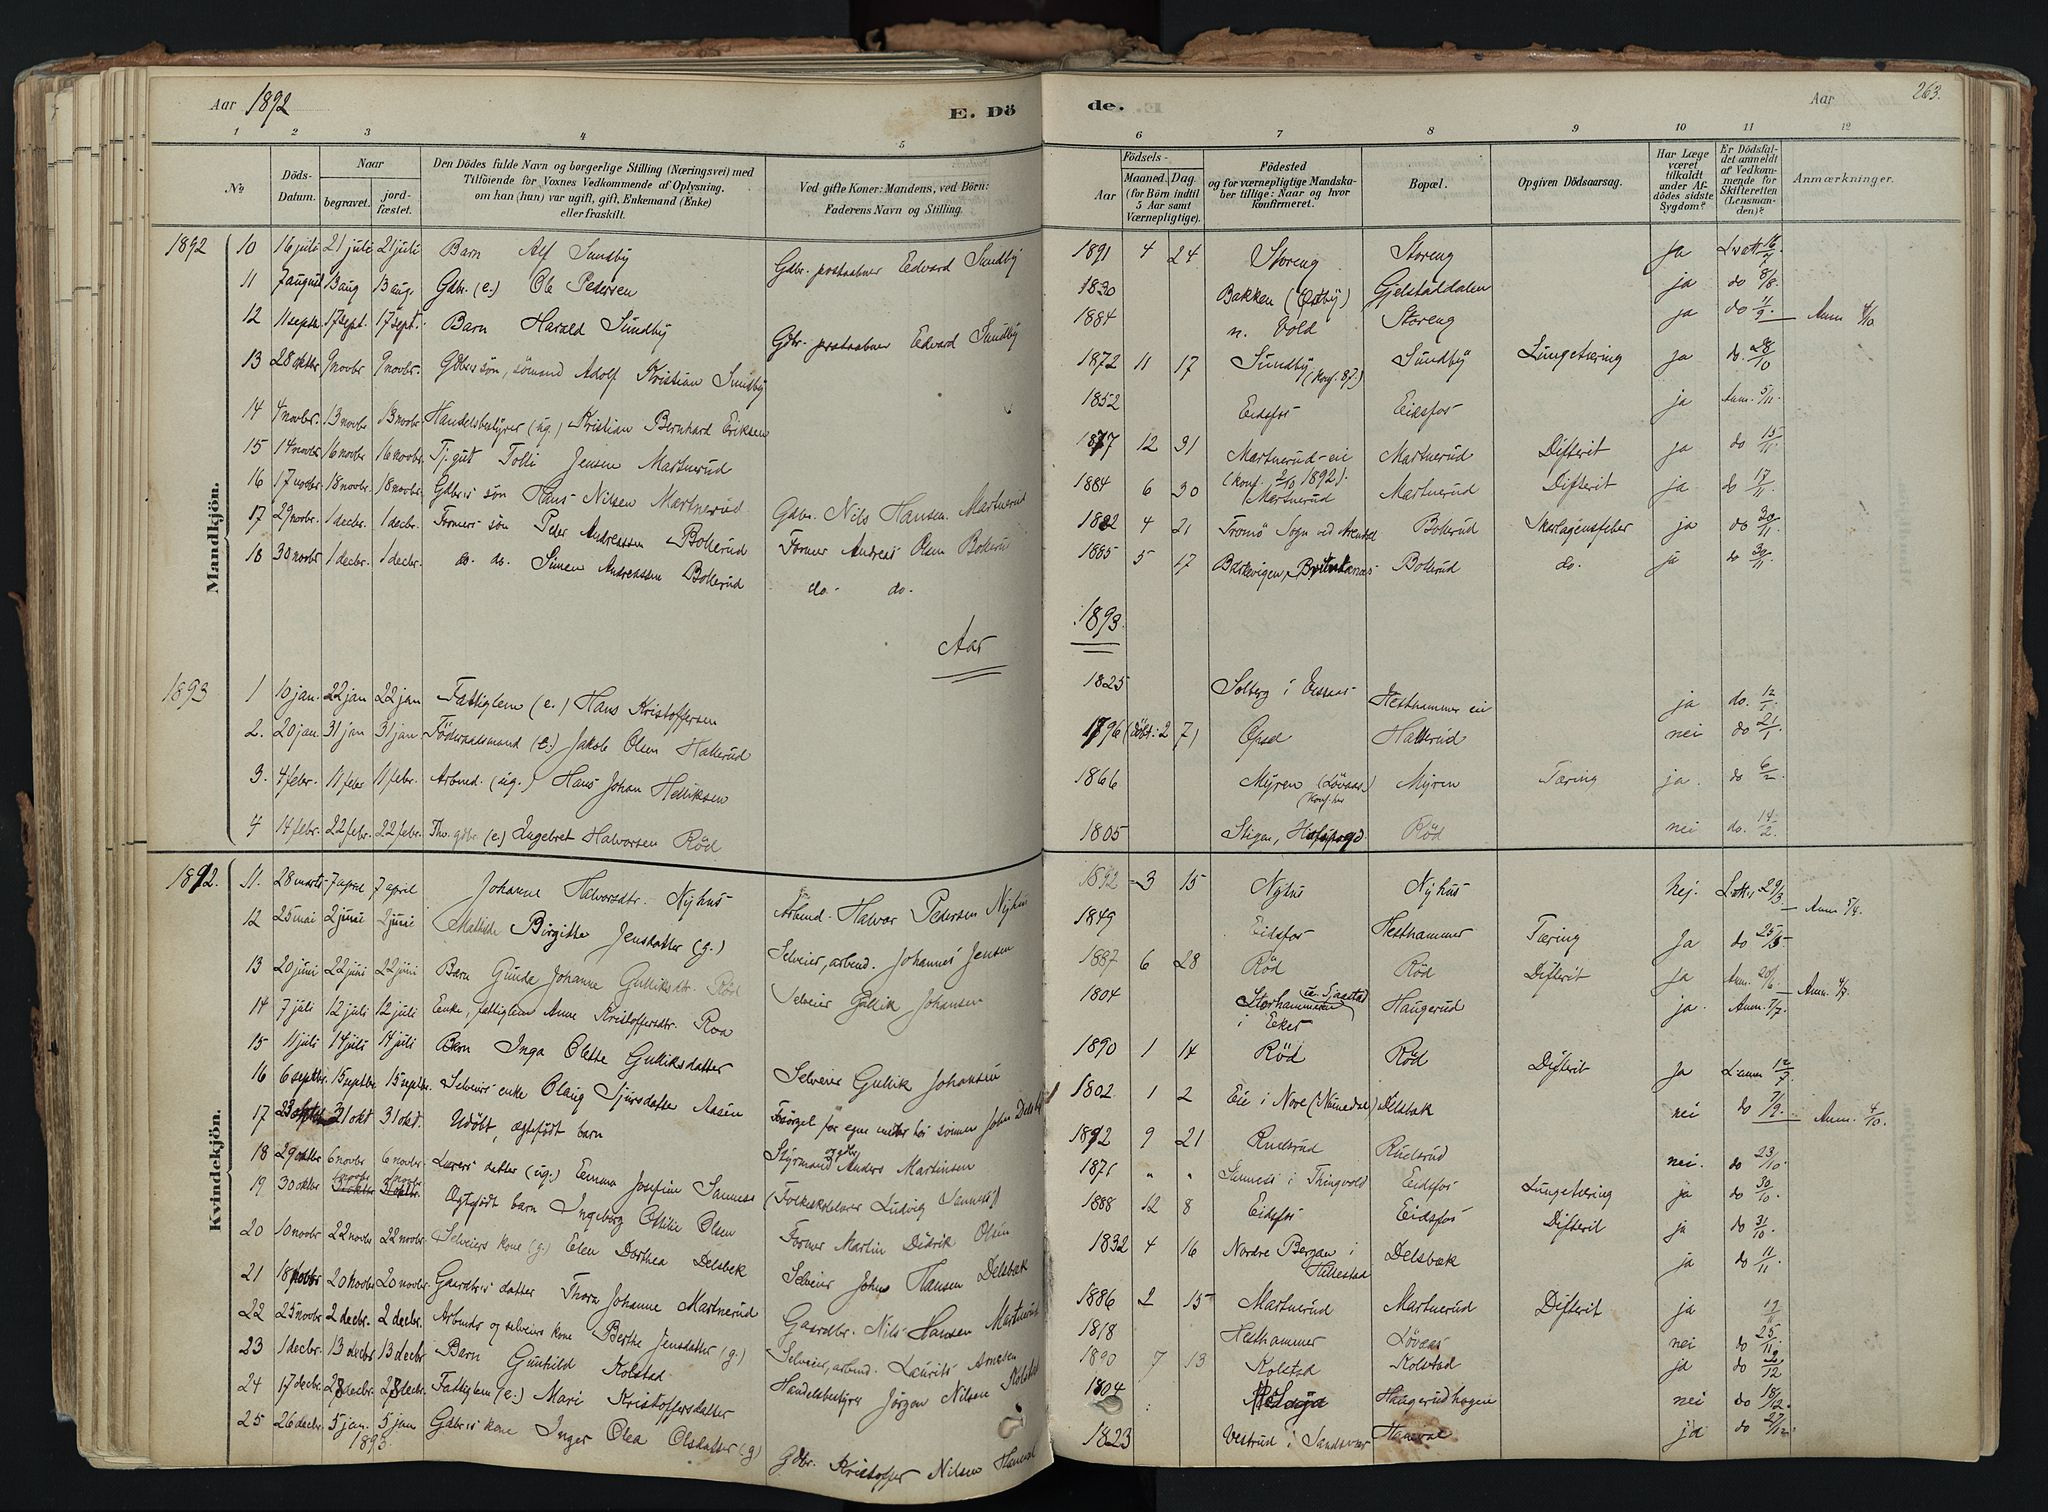 Aar 1892
E. Döde.
Aar
263.
1 2 3 4 5 6 7 8 9 10 11 12
No
Döds-Datum.
Naar
begravet.
jordfæstet.
Den Dödes fulde Navn og borgerlige Stilling (Næringsvei) med
Tilföiende for Voxnes Vedkommende af Oplysning.
om han (hun) var ugift, gift, Enkemand (Enke)
eller fraskilt.
Ved gifte Koner: Mandens, ved Börn:
Faderens Navn og Stilling.
Födsels-
Aar
Maaned. Dag.
(for Börn indtil
5 Aar samt
Værnepligtige).
Födested
og for værnepligtige Mandska-
ber tillige: Naar og hvor
konfirmeret.
Bopæl.
Opgiven Dödsaarsag.
Har Læge
været
tilkaldt
under Af-
dödes sidste
Sygdom?
Er Dödsfal-
det anmeldt
af Vedkom-
mende for
Skifteretten
(Lensman-
den)?
Anmærkninger.
Mandkjön.
1892 10 16 juli 21 juli 21 juli Barn Alf Sundby Gdbr. postaabner Edvard Sundby 1891 4 24 Storeng Storeng ja 16/7
11 7 august 13 aug 13 aug. Gdbr. (e.) Ole Pedersen 1830 Bakken (Östby) Gjelstaddalen ja do 8/8
12 11 septr 17 sept. 17 sept. Barn Harald Sundby Gdbr. postaabner Edvard Sundby 1884 n. Vold Storeng ja do 11/9 Anm. 4/10.
13 28 oktbr 9 novbr 9 novbr. Gdbrs sön, sömand Adolf Kristian Sundby 1872 11 17 Sundby (Konf. 87.) Sundby Lungetæring ja do. 28/10
14 4 novbr. 13 novbr 13 novbr. Handelsbestyrer (ug.) Kristian Bernhard Eriksen 1852 Eidsfos Eidsfos ja Anm. 5/11.
15 14 novbr. 16 novbr 16 novbr. Tj. gut Tolli Jensen Martnerud 1877 12 31 Martnerud-eie (Konf. 2/10 1892). Martnerud Difterit ja do 15/11
16 17 novbr. 18 novbr. 18 novbr. Gdbrs sön Hans Nilsen Martnerud Gdbr. Nils Hansen Martnerud 1884 6 30 Martnerud Martnerud Difterit ja do 17/11
17 29 novbr. 1 decbr. 1 decbr. Formers sön Peder Andreassen Bollerud Former Andreas Olsen Bollerud 1882 4 21 Tromö Sogn ved Arendal Bollerud Skarlagensfeber ja do 30/11
18 30 novbr 1 decbr. 1 decbr. do. do. Simen Andreassen Bollerud do. do. 1885 5 17 Bollerud do. ja do 30/11
Aar 1893.
1893 1 10 jan. 22 jan 22 jan Fattiglem (e.) Hans Kristoffersen 1825 Solberg i Hesthammer eie ja do. 12/1
2. 20 jan. 31 jan 31 jan Föderaadsmand (e.) Jakob Olsen Hallerud 1796 (döbt: 2 7) Opsal Hallerud nei do 21/1
3. 4 febr. 11 febr 11 febr. Arbmd. (ug.) Hans Johan Helliksen 1866 Myren (Lövaas.) (Konf. her Myren Tæring ja. do 6/2
4 14 febr. 22 febr. 22 febr. gdbr (e.) Ingebret Halvorsen Röd 1805 Stigen, Röd nei do. 14/2.
Kvindekjön.
1892. 11. 28 marts 7 april 7 april Johanne Halvorsdtr. Nyhus Arbmd. Halvor Pedersen Nyhus 1892 3 15 Nyhus Nyhus nej. 29/3. Anm 5/4.
12 25 mai 2 juni 2 juni Mathilde Birgitte Jensdatter (g.) Selveier, arbmd. Johannes Jensen 1849 Eidsfos Hesthammer Tæring Ja do 25/5
13 20 juni 22 juni 22 juni Barn Gunda Johanne Gulliksdtr. Röd Selveier Gullik Johansen 1887 6 28 Röd Röd Difterit ja Anm. 20/6. Anm. 4/7.
14 7 juli 12 juli 12 juli Enke, fattiglem Anne Kristoffersdtr. Roa 1804 Storhammeren i Eker Haugerud ja. Anm. 7/7.
15 11 juli 14 juli 14 juli Barn Inga Olette Gulliksdatter Selveier Gullik Johansen 1890 1 14 Röd Röd Difterit Ja 12/7
16 6 septbr. 15 septbr 15 septbr. Selveiers enke Olaug Sjursdatter Aasen Forsörget för egne midler hos sönnen John Delsbæk 1802 1 2 Eie i Nore (Numedal) Delsbæk nei do 7/9. Anm. 4/10.
17 23 31 okt 31 okt. Udöbt, ægtefödt barn Styrmand Anders Martinsen 1892 9 21 Ruelsrud Ruelsrud nei. do 23/10.
18 29 oktbr 6 novbr 6 novbr. Lærers datter (ug.) Emma Josefine Sanness (Folkeskolelærer Ludvig Sanness) 1871 " " Sanness i Thingvold Eidsfos Lungetæring ja do 30/10.
19 30 oktbr Ægtefödt barn Ingeborg Ottilie Olsen Former Martin Didrik Olsen 1888 12 8 Eidsfos Eidsfos Difterit ja do 31/10.
20 10 novbr 22 novbr 22 novbr. Selveiers kone (g.) Elen Dorthea Delsbæk Selveier Johns Hansen Delsbæk 1832 4 16 Nordre Bergan i Hillestad Delsbæk ja do 11/11
21 18 novbr 20 novbr 20 novbr. Gaardbrs datter Thora Johanne Martnerud Gaardbr. Nils Hansen Martnerud 1886 2 15 Martnerud Martnerud Difterit ja 19/11
22 25 novbr 2 decbr. 2 decbr. Arbmds og selveiers kone Berthe Jensdatter (g.) Selveier, arbmd. Laurits Arnesen 1818 Hesthammer Lövaas nei do 25/11
23 1 decbr. 13 decbr 13 decbr Barn Gunhild Kolstad Handelsbestyrer Jörgen Nilsen Kolstad 1890 7 13 Kolstad Kolstad ja do 2/12
24 17 decbr. 28 decbr. 28 decbr. Fattiglem (e.) Mari Kristoffersdatter 1804 Haugerudhagen nei do 18/12.
25 26 decbr 5 jan. 5 jan 1893. Gdbrs kone Inger Olea Olsdatter (g) Gdbr. Kristoffer Nilsen Haneval 1823 Vestrud i Sandsvær Haneval ja do 27/12.